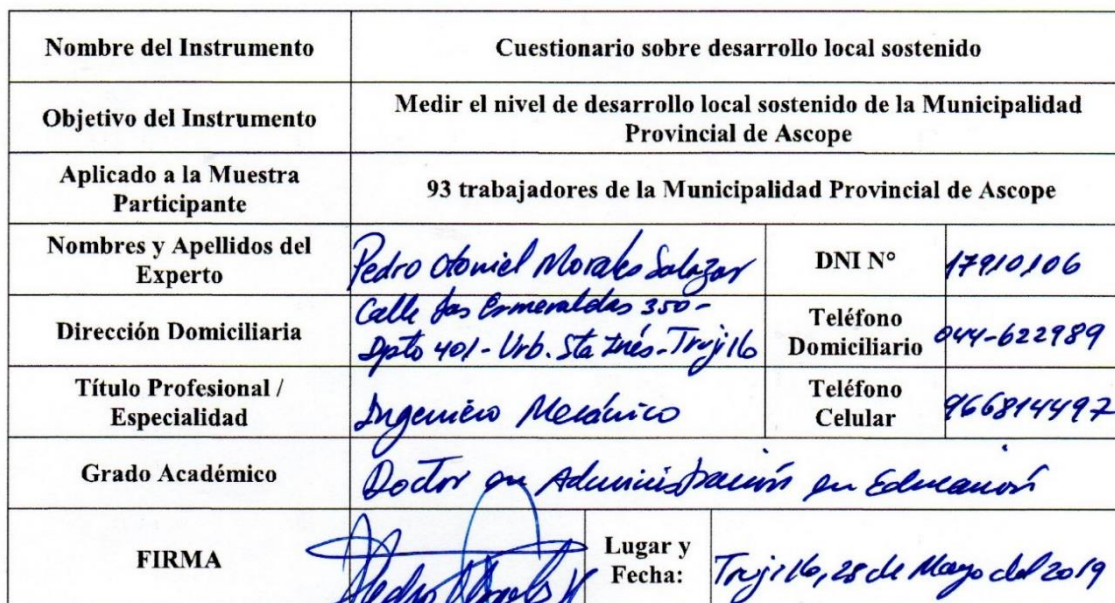 Nombre del Instrumento
Cuestionario sobre desarrollo local sostenido
Objetivo del Instrumento
Medir el nivel de desarrollo local sostenido de la Municipalidad
Provincial de Ascope
Aplicado a la Muestra
Participante
93 trabajadores de la Municipalidad Provincial de Ascope
Nombres y Apellidos del
Experto
Pedro Otoniel Morales Salazar
DNI N°
17910106
Dirección Domiciliaria
Calle Las Esmeraldas 350-
Dpto 401 - Urb. Sta Inés - Trujillo
Teléfono
Domiciliario
044-622989
Título Profesional /
Especialidad
Ingeniero Mecánico
Teléfono
Celular
966814497
Grado Académico
Doctor en Administración en Educación
FIRMA
Lugar y
Fecha:
Trujillo, 28 de Mayo del 2019